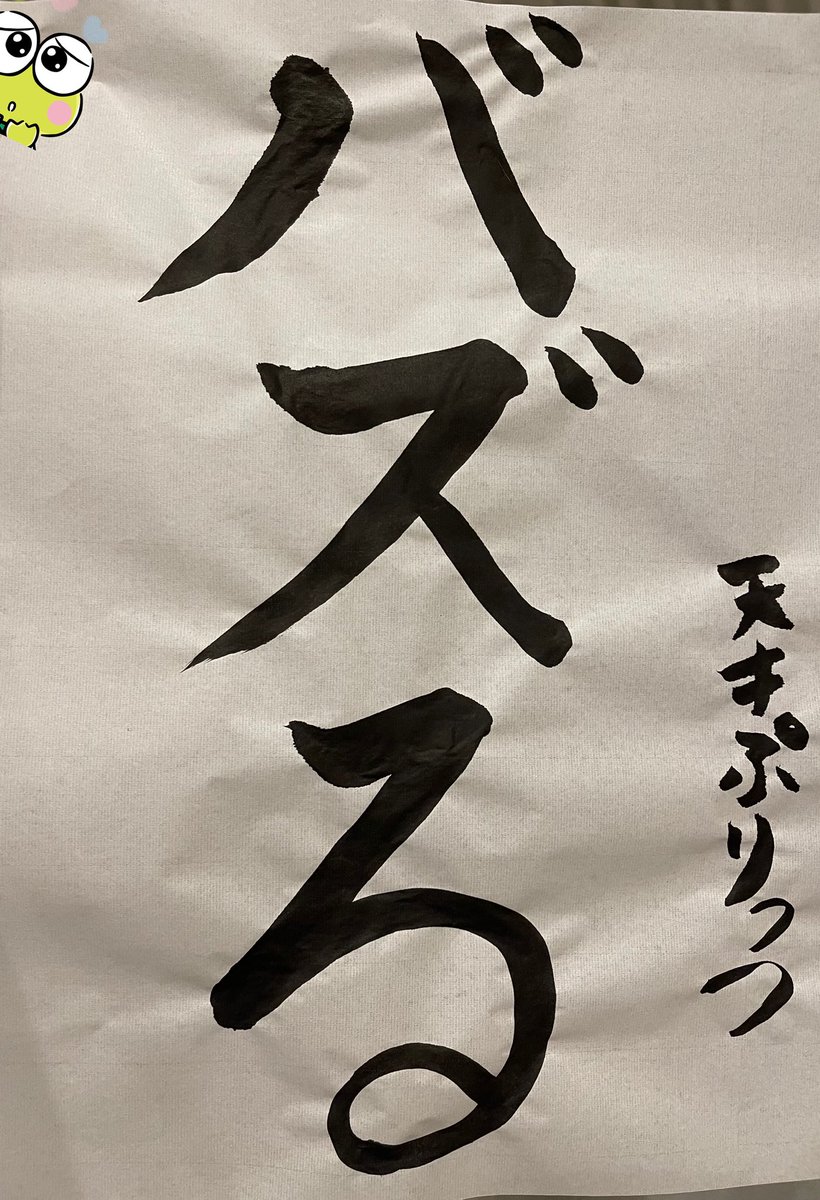 バズる
天才ぷりっつ